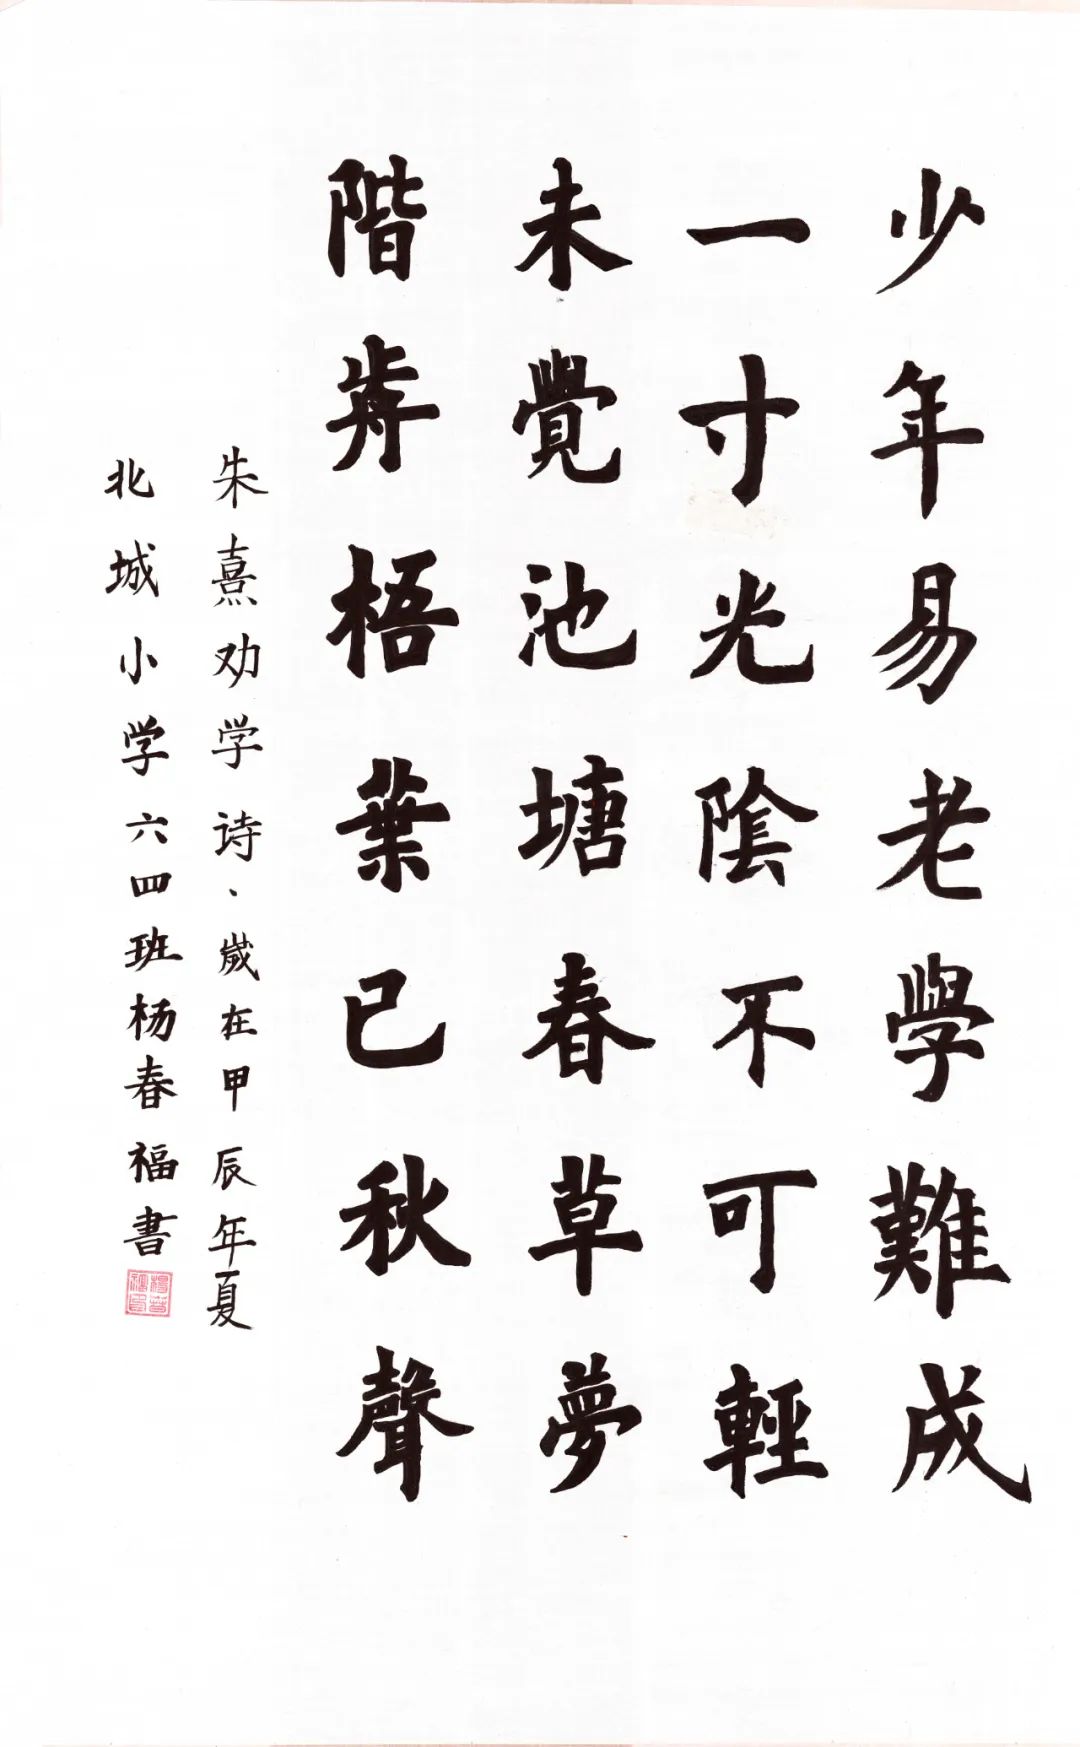 少年易老學難成
一寸光陰不可輕
未覺池塘春草夢
階歬梧葉已秋聲
朱熹劝学诗、歲在甲辰年夏
北城小学六四班杨春福書